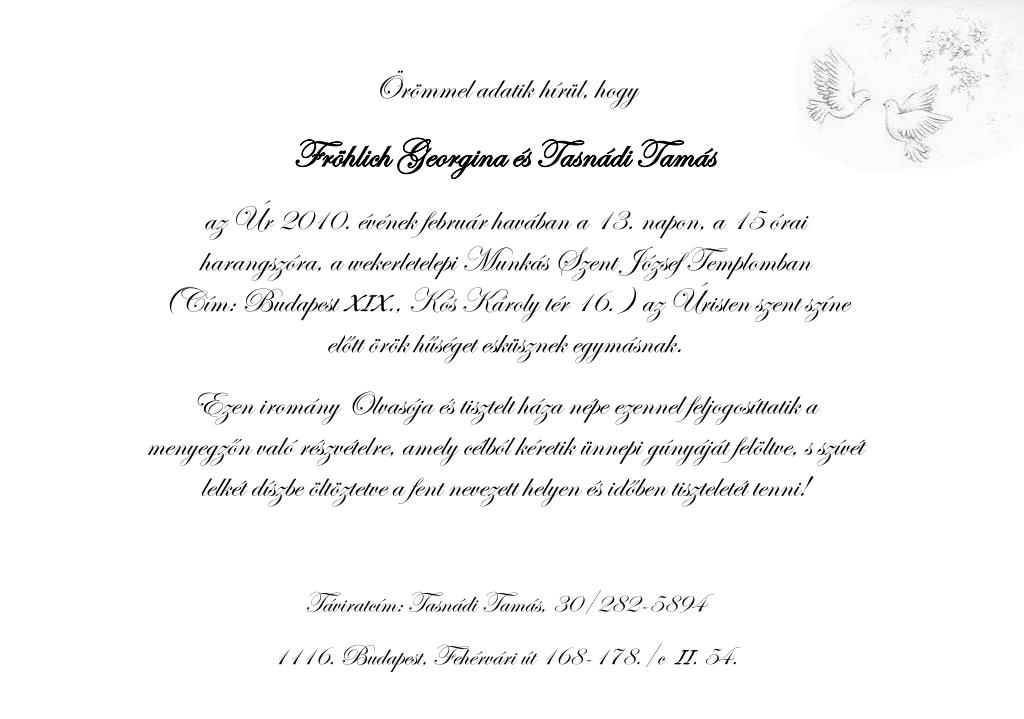 Örömmel adatik hírül, hogy
Fröhlich Georgina és Tasnádi Tamás
az Úr 2010. évének február havában a 13. napon, a 15 órai
harangszóra, a wekerletelepi Munkás Szent József Templomban
(Cím: Budapest XIX., Kós Károly tér 16.) az Úristen szent színe
előtt örök hűséget esküsznek egymásnak.
Ezen iromány Olvasója és tisztelt háza népe ezennel feljogosíttatik a
menyegzőn való részvételre, amely célból kéretik ünnepi gúnyáját felöltve, s szívét
lelkét díszbe öltöztetve a fent nevezett helyen és időben tiszteletét tenni!
Táviratcím: Tasnádi Tamás, 30/282-5894
1116. Budapest, Fehérvári út 168-178./c II. 54.